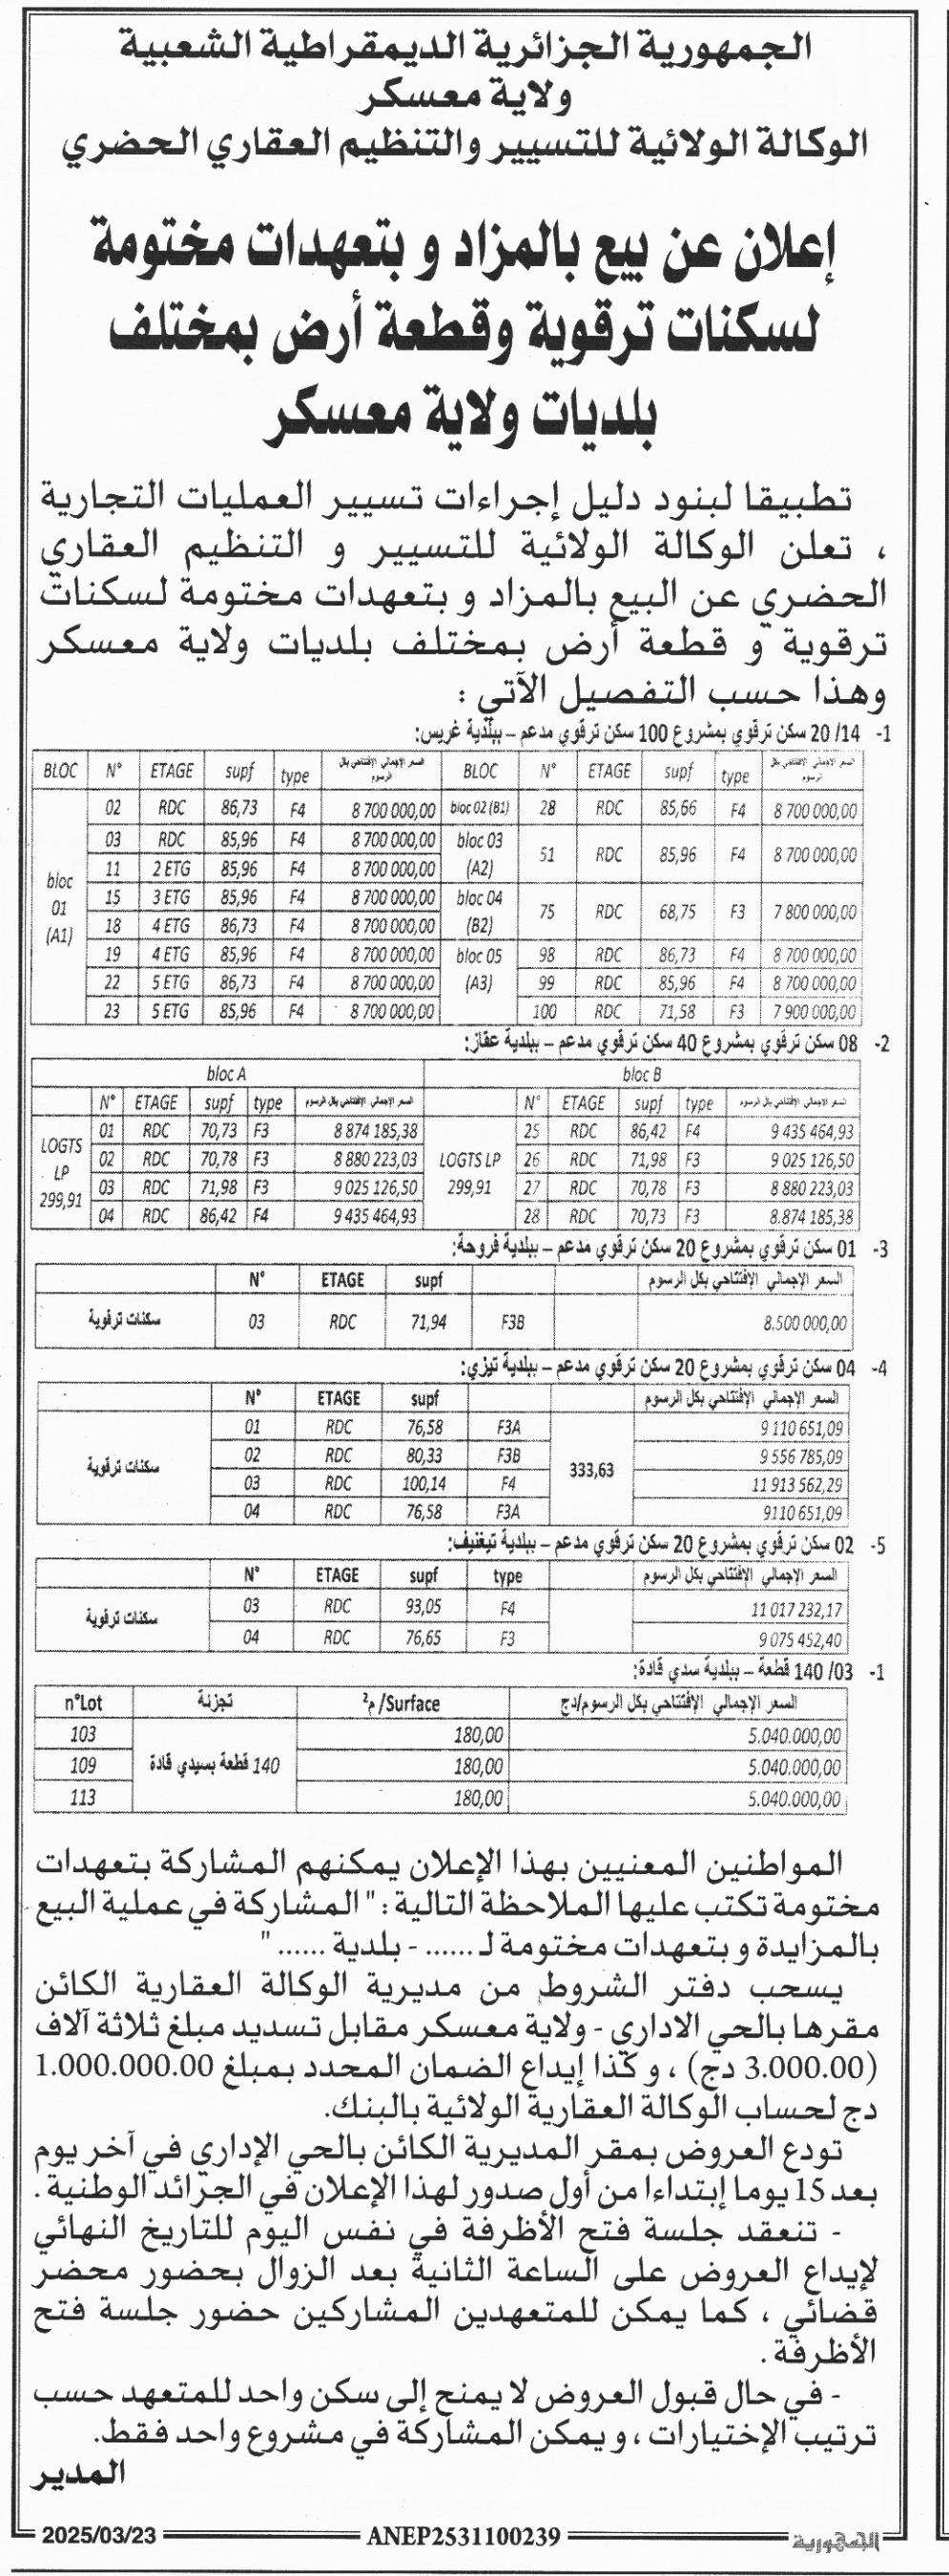 الجمهورية الجزائرية الديمقراطية الشعبية
ولاية معسكر
الوكالة الولائية للتسيير والتنظيم العقاري الحضري
إعلان عن بيع بالمزاد و بتعهدات مختومة
لسكنات ترقوية وقطعة أرض بمختلف
بلديات ولاية معسكر
تطبيقا لبنود دليل إجراءات تسيير العمليات التجارية
، تعلن الوكالة الولائية للتسيير و التنظيم العقاري
الحضري عن البيع بالمزاد و بتعهدات مختومة لسكنات
ترقوية و قطعة أرض بمختلف بلديات ولاية معسكر
وهذا حسب التفصيل الآتي :
1- 14/ 20 سكن ترقوي بمشروع 100 سكن ترقوي مدعم – ببلدية غريس:
BLOC N° ETAGE supf type السعر الإجمالي الإفتتاحي بكل الرسوم BLOC N° ETAGE supf type السعر الإجمالي الإفتتاحي بكل الرسوم
bloc 01 (A1) 02 RDC 86,73 F4 8 700 000,00 bloc 02 (B1) 28 RDC 85,66 F4 8 700 000,00
03 RDC 85,96 F4 8 700 000,00 bloc 03 (A2) 51 RDC 85,96 F4 8 700 000,00
11 2 ETG 85,96 F4 8 700 000,00
15 3 ETG 85,96 F4 8 700 000,00 bloc 04 (B2) 75 RDC 68,75 F3 7 800 000,00
18 4 ETG 86,73 F4 8 700 000,00
19 4 ETG 85,96 F4 8 700 000,00 bloc 05 (A3) 98 RDC 86,73 F4 8 700 000,00
22 5 ETG 86,73 F4 8 700 000,00 99 RDC 85,96 F4 8 700 000,00
23 5 ETG 85,96 F4 8 700 000,00 100 RDC 71,58 F3 7 900 000,00
2- 08 سكن ترقوي بمشروع 40 سكن ترقوي مدعم – ببلدية عقاز:
bloc A bloc B
N° ETAGE supf type السعر الإجمالي الإفتتاحي بكل الرسوم N° ETAGE supf type السعر الإجمالي الإفتتاحي بكل الرسوم
LOGTS LP 299,91 01 RDC 70,73 F3 8 874 185,38 LOGTS LP 299,91 25 RDC 86,42 F4 9 435 464,93
02 RDC 70,78 F3 8 880 223,03 26 RDC 71,98 F3 9 025 126,50
03 RDC 71,98 F3 9 025 126,50 27 RDC 70,78 F3 8 880 223,03
04 RDC 86,42 F4 9 435 464,93 28 RDC 70,73 F3 8.874 185,38
3- 01 سكن ترقوي بمشروع 20 سكن ترقوي مدعم – ببلدية فروحة:
N° ETAGE supf السعر الإجمالي الإفتتاحي بكل الرسوم
سكنات ترقوية 03 RDC 71,94 F3B 8.500 000,00
4- 04 سكن ترقوي بمشروع 20 سكن ترقوي مدعم – ببلدية تيزي:
N° ETAGE supf السعر الإجمالي الإفتتاحي بكل الرسوم
سكنات ترقوية 01 RDC 76,58 F3A 333,63 9 110 651,09
02 RDC 80,33 F3B 9 556 785,09
03 RDC 100,14 F4 11 913 562,29
04 RDC 76,58 F3A 9110 651,09
5- 02 سكن ترقوي بمشروع 20 سكن ترقوي مدعم – ببلدية تيغنيف:
N° ETAGE supf type السعر الإجمالي الإفتتاحي بكل الرسوم
سكنات ترقوية 03 RDC 93,05 F4 11 017 232,17
04 RDC 76,65 F3 9 075 452,40
1- 03/ 140 قطعة – ببلدية سدي قادة:
n°Lot تجزئة Surface/ م² السعر الإجمالي الإفتتاحي بكل الرسوم/دج
103 140 قطعة بسيدي قادة 180,00 5.040.000,00
109 180,00 5.040.000,00
113 180,00 5.040.000,00
المواطنين المعنيين بهذا الإعلان يمكنهم المشاركة بتعهدات
مختومة تكتب عليها الملاحظة التالية : " المشاركة في عملية البيع
بالمزايدة و بتعهدات مختومة لـ ...... - بلدية ...... "
يسحب دفتر الشروط من مديرية الوكالة العقارية الكائن
مقرها بالحي الاداري - ولاية معسكر مقابل تسديد مبلغ ثلاثة آلاف
(3.000.00 دج) ، و كذا إيداع الضمان المحدد بمبلغ 1.000.000.00
دج لحساب الوكالة العقارية الولائية بالبنك.
تودع العروض بمقر المديرية الكائن بالحي الإداري في آخر يوم
بعد 15 يوما إبتداءا من أول صدور لهذا الإعلان في الجرائد الوطنية .
- تنعقد جلسة فتح الأظرفة في نفس اليوم للتاريخ النهائي
لإيداع العروض على الساعة الثانية بعد الزوال بحضور محضر
قضائي ، كما يمكن للمتعهدين المشاركين حضور جلسة فتح
الأظرفة .
- في حال قبول العروض لا يمنح إلى سكن واحد للمتعهد حسب
ترتيب الإختيارات ، و يمكن المشاركة في مشروع واحد فقط.
المدير
الجمهورية ANEP2531100239 2025/03/23